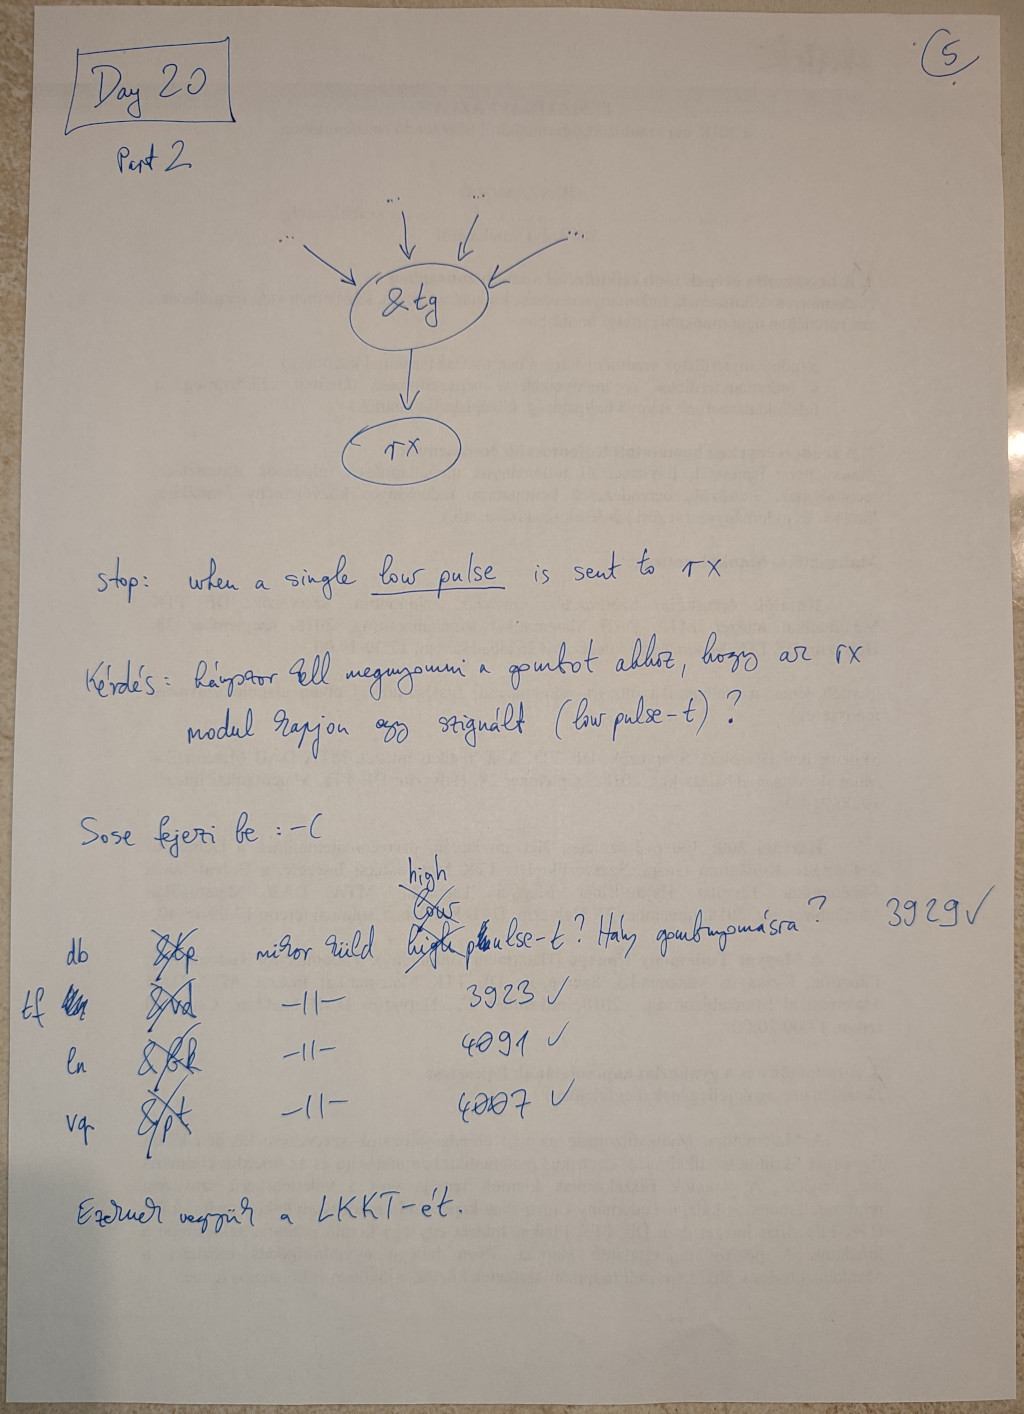 5
Day 20
Part 2
... ... ... ...
&tg
rx
stop: when a single low pulse is sent to rx
Kérdés: hányszor kell megnyomni a gombot ahhoz, hogy az rx
modul kapjon egy szignált (low pulse-t)?
Sose fejezi be :-(
high
low
db &tp mikor küld high pulse-t? Hány gombnyomásra? 3929 ✓
tf &vd -11- 3923 ✓
ln &bk -11- 4091 ✓
vq &pt -11- 4007 ✓
Ezeknek vegyük a LKKT-ét.